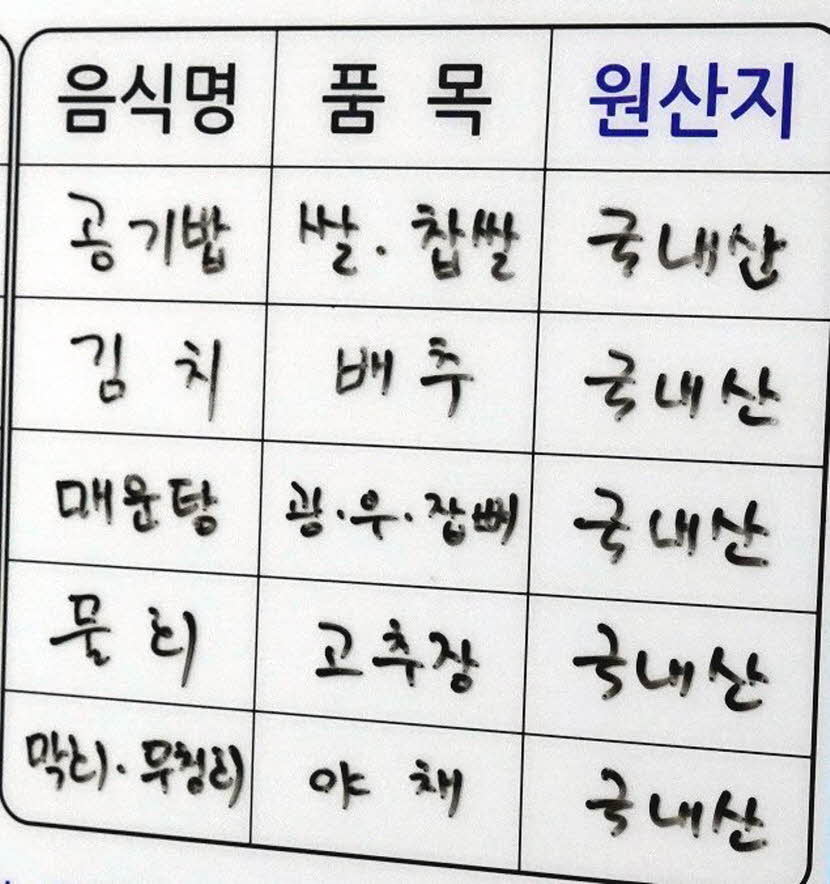 음식명 품 목 원산지
공기밥 쌀 · 찹쌀 국내산
김 치 배 추 국내산
매운탕 광 · 우 · 잡뼈 국내산
물 회 고추장 국내산
막회 · 무침회 야 채 국내산